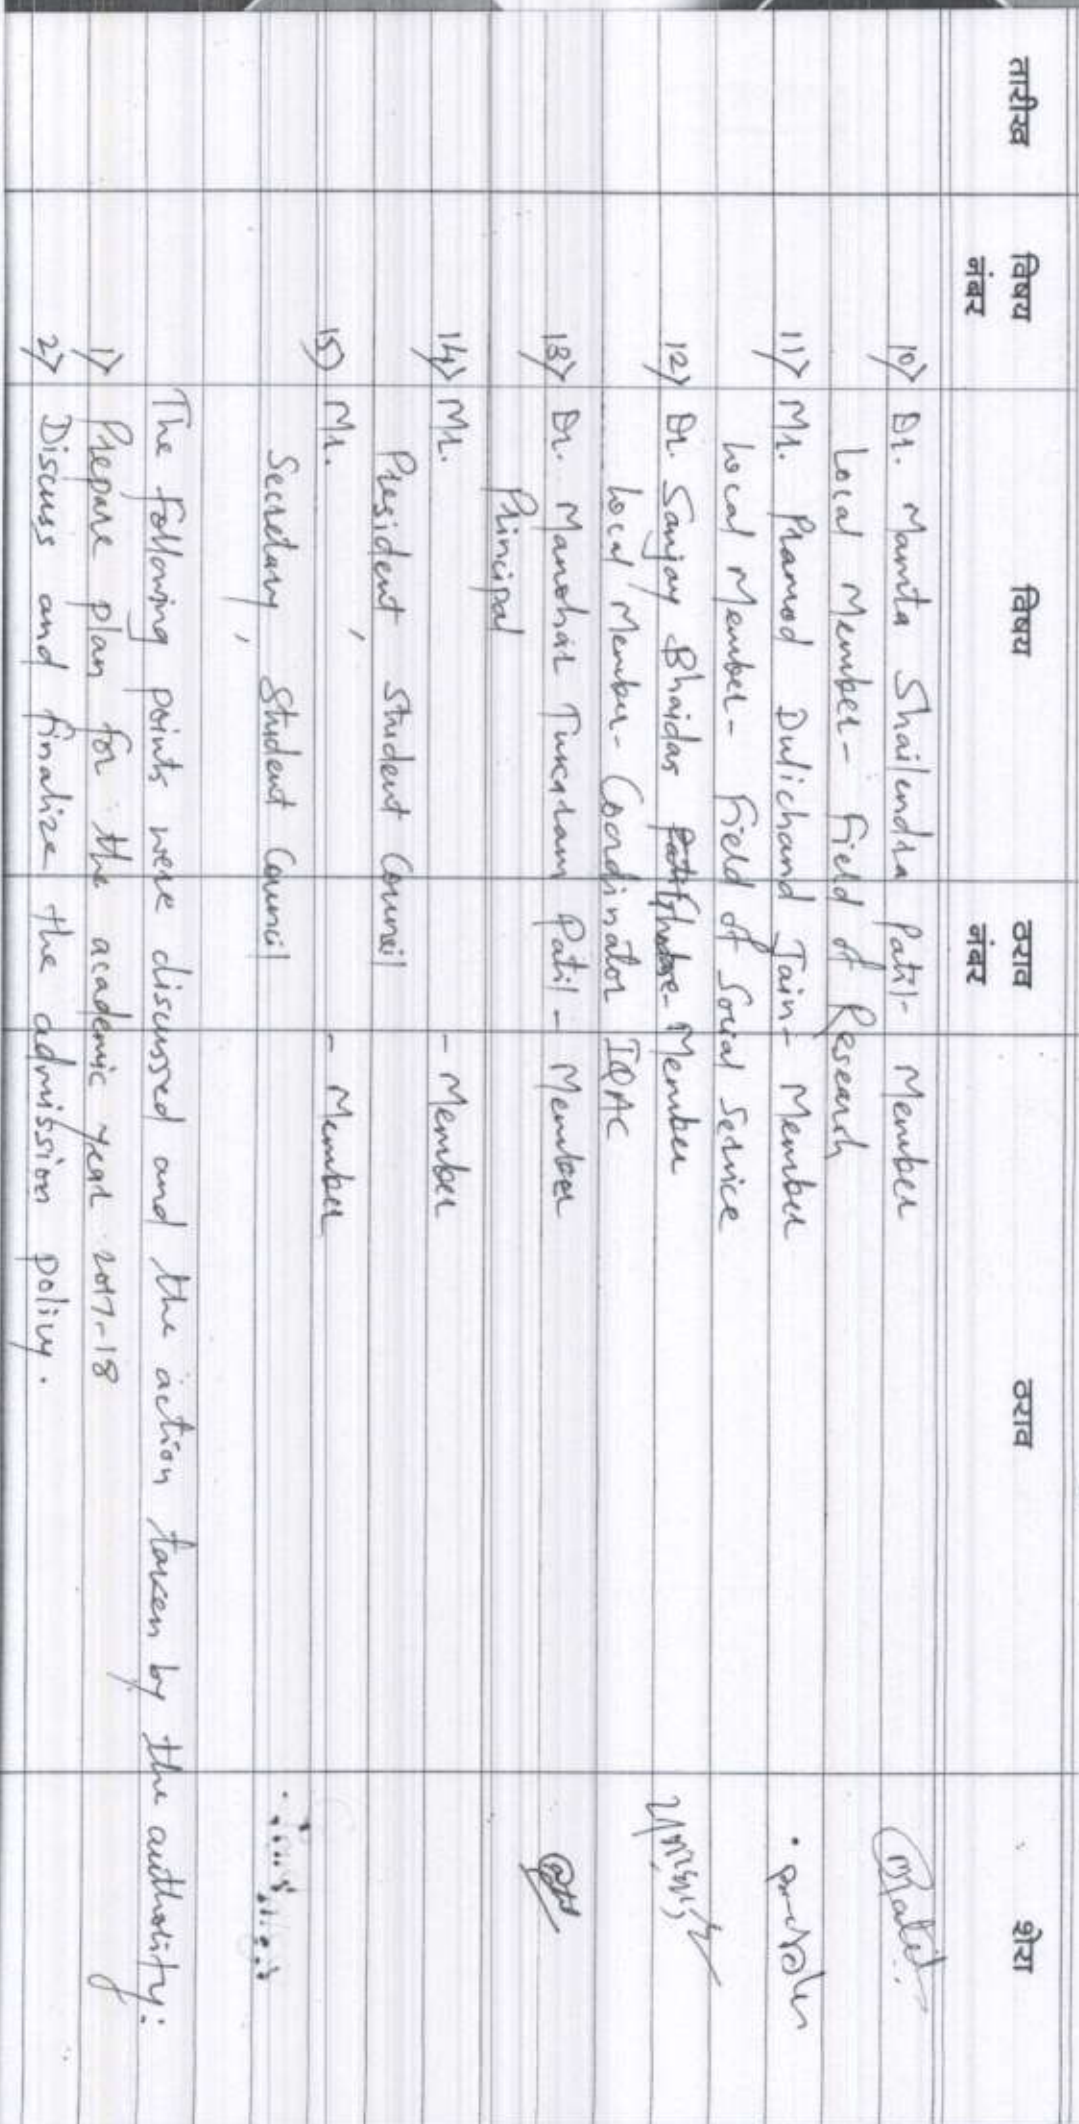 तारीख विषय नंबर विषय ठराव नंबर ठराव शेरा
10) Dr. Mamta Shailendra Patil - Member
Local Member - Field of Research
11) Mr. Pramod Dulichand Jain - Member
Local Member - Field of Social Service
12) Dr. Sanjay Bhaidas - Member
Local Member - Coordinator IQAC
13) Dr. Manohar Tukaram Patil - Member
Principal
14) Mr. - Member
President Student Council
15) Mr. , - Member
Secretary Student Council
,
The following points were discussed and the action taken by the authority:
1) Prepare plan for the academic year 2017-18
2) Discuss and finalize the admission policy.